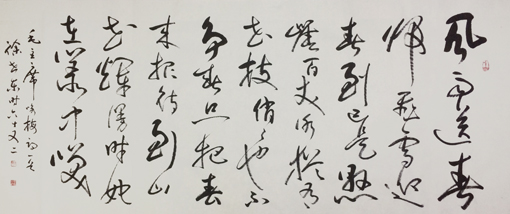 风雨送春
归飞雪迎
春到已是悬
崖百丈冰犹有
花枝俏俏也不
争春只把春
来报待到山
花烂漫时她
在丛中笑
毛主席咏梅词一首
徐 时六十又二